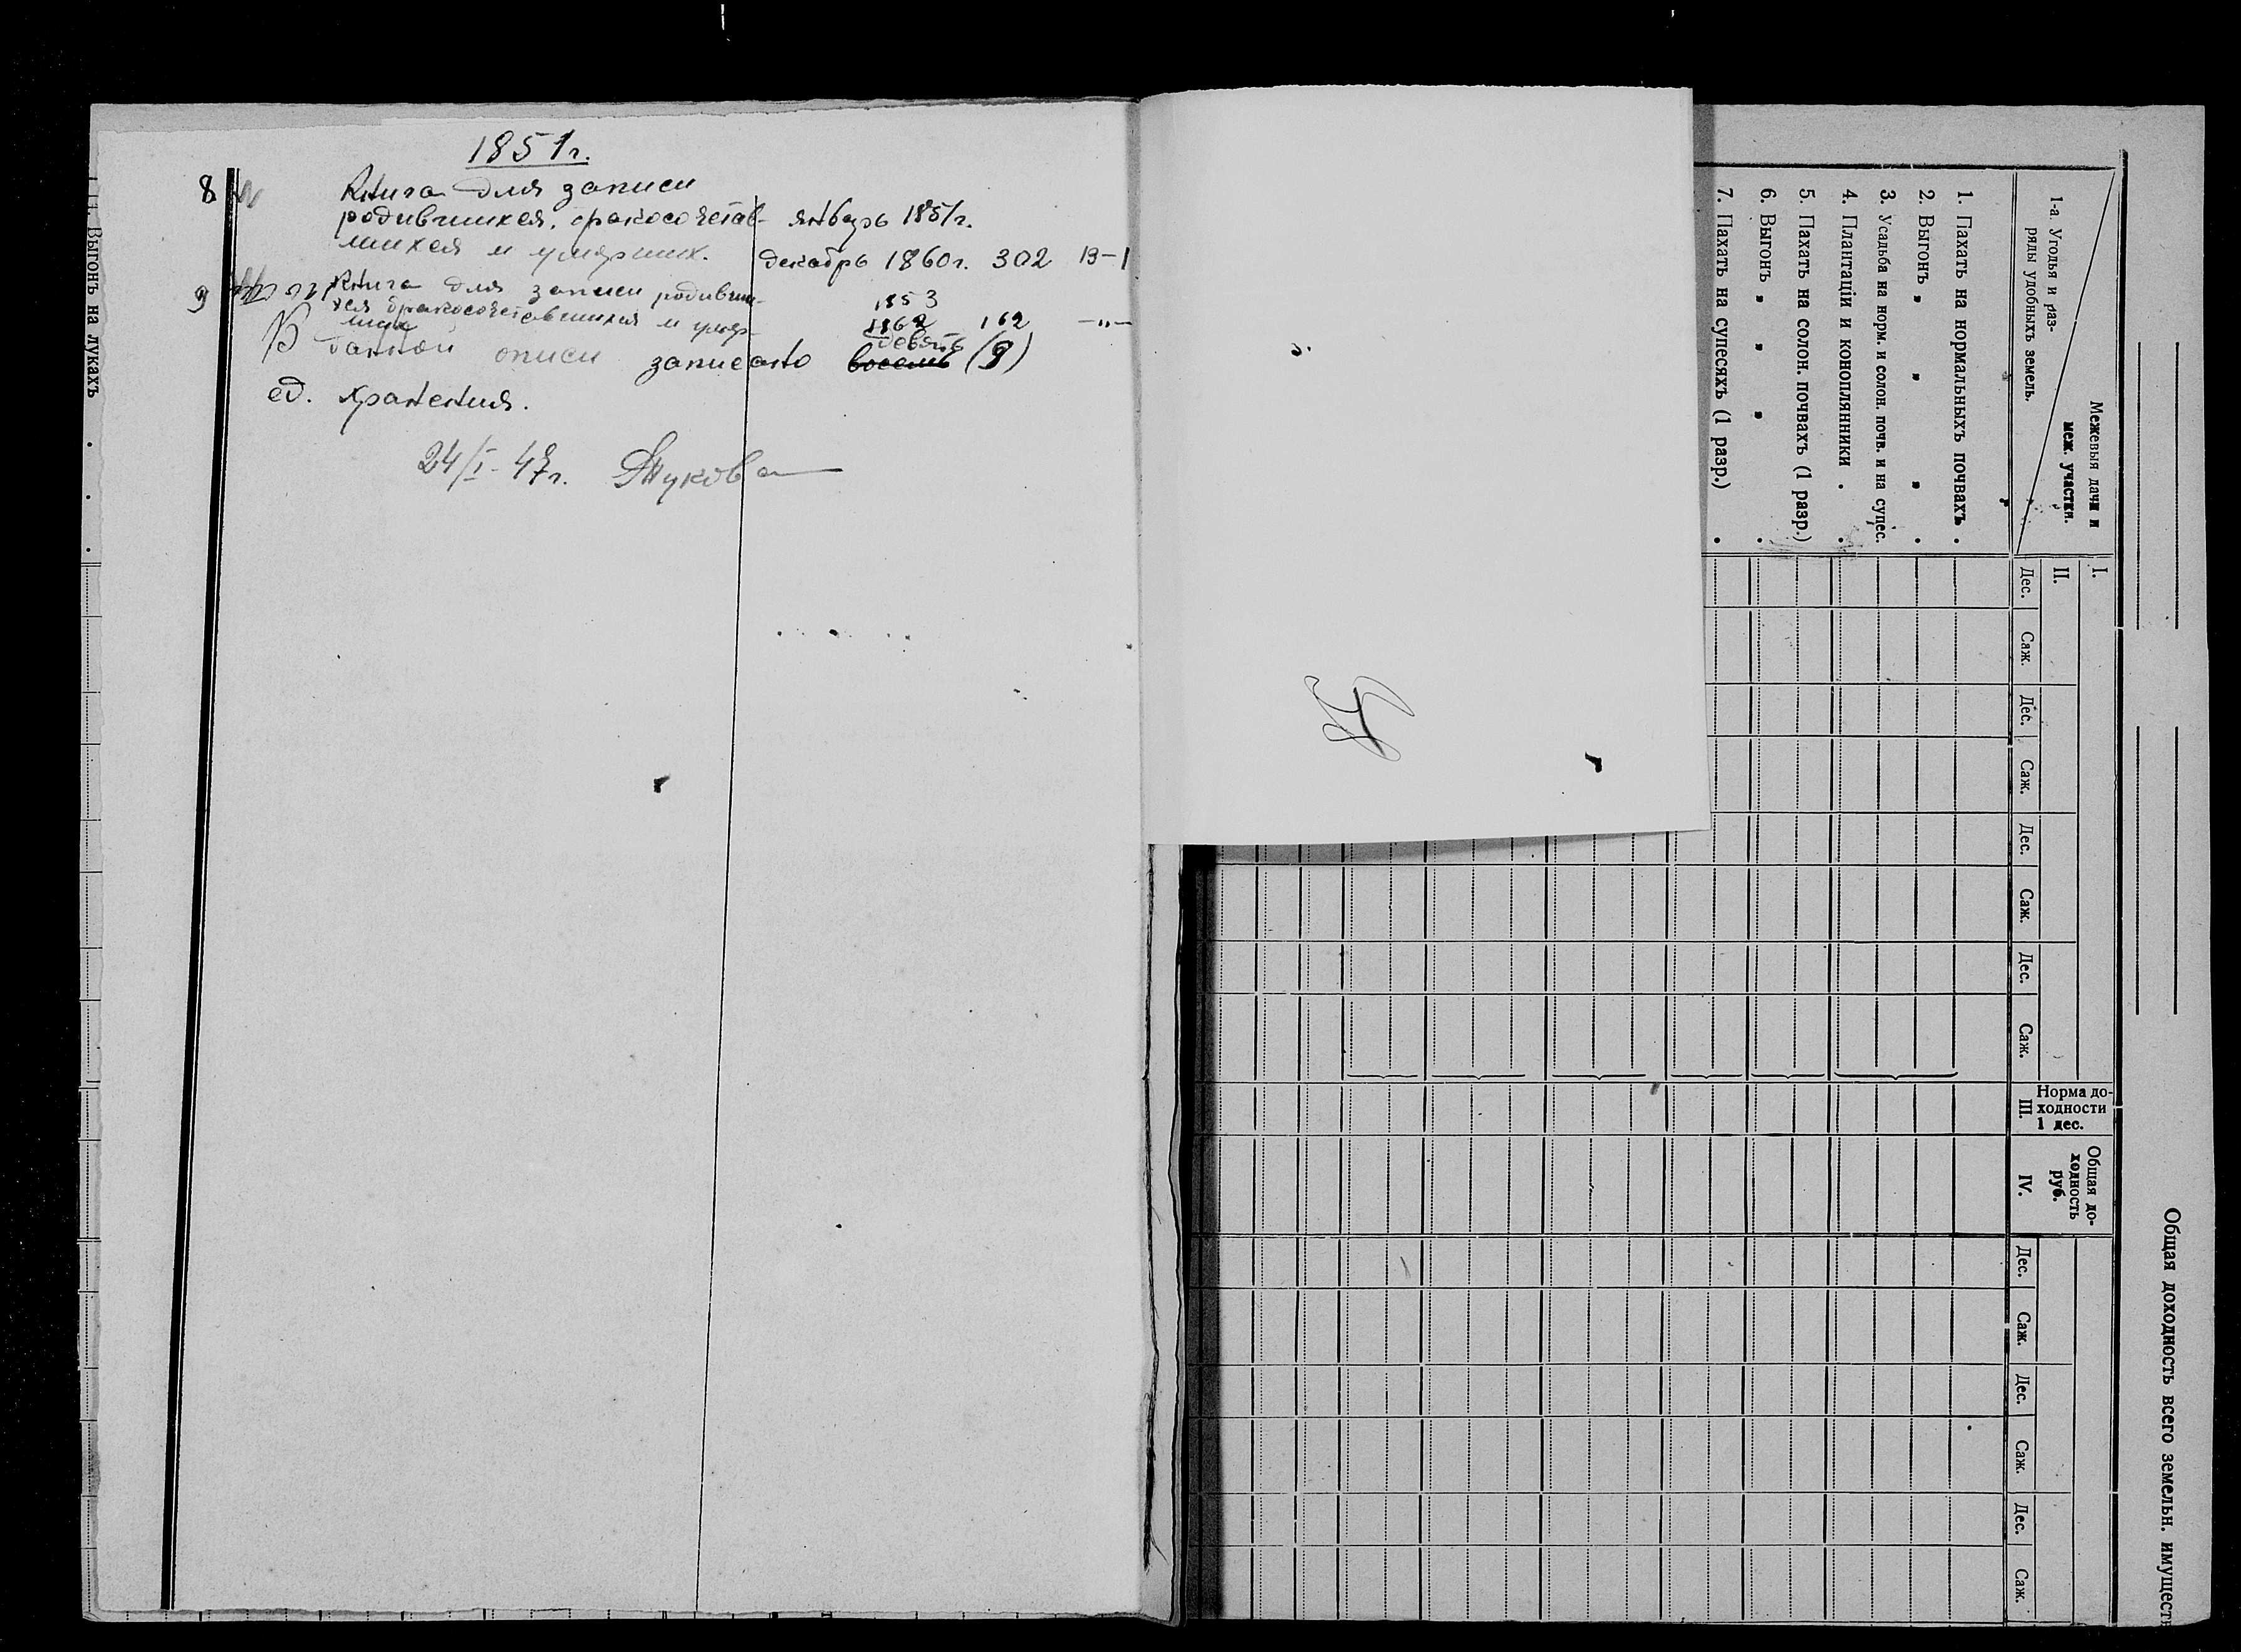 1851г.
8 Книга для записи
родившихся, бракосочетав- январь 1851г.
шихся и умерших. декабрь 1860г. 302 13-1
9 Книга для записи родивши- 1853
хся бракосочетавшихся и умер- 1862 162 -"-
ших девять
В данной описи записано восемь (9)
ед. хранения.
24/I-47г. Жукова
Выгонъ на лукахъ
Общая доходность всего земельн. имущест
Межевыя дачи и
меж. участки.
1-а Угодья и раз-
ряды удобныхъ земель.
I.
II.
Дес. Саж. Дес. Саж. Дес. Саж. Дес. Саж.
Норма до-
ходности
1 дес.
III.
Общая до-
ходность
руб.
IV.
Дес. Саж. Дес. Саж. Дес. Саж.
1. Пахать на нормальныхъ почвахъ .
2. Выгонъ „ „ „ .
3. Усадьба на норм. и солон. почв. и на супес.
4. Плантаціи и коноплянники . .
5. Пахать на солон. почвахъ (1 разр.)
6. Выгонъ „ „ „ .
7. Пахать на супесяхъ (1 разр.) .